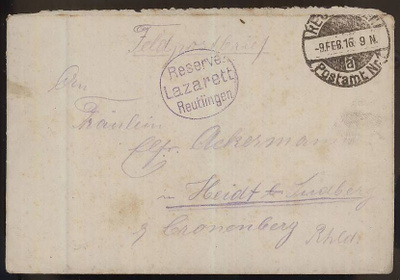 Feldpostbrief
-9.FEB.16. 9 N.
a
Postamt Nr.
Reserve-
Lazarett
Reutlingen
An
Fräulein
Elfr. Ackermann
in Heidt b. Sudberg
Cronenberg
Rhld.